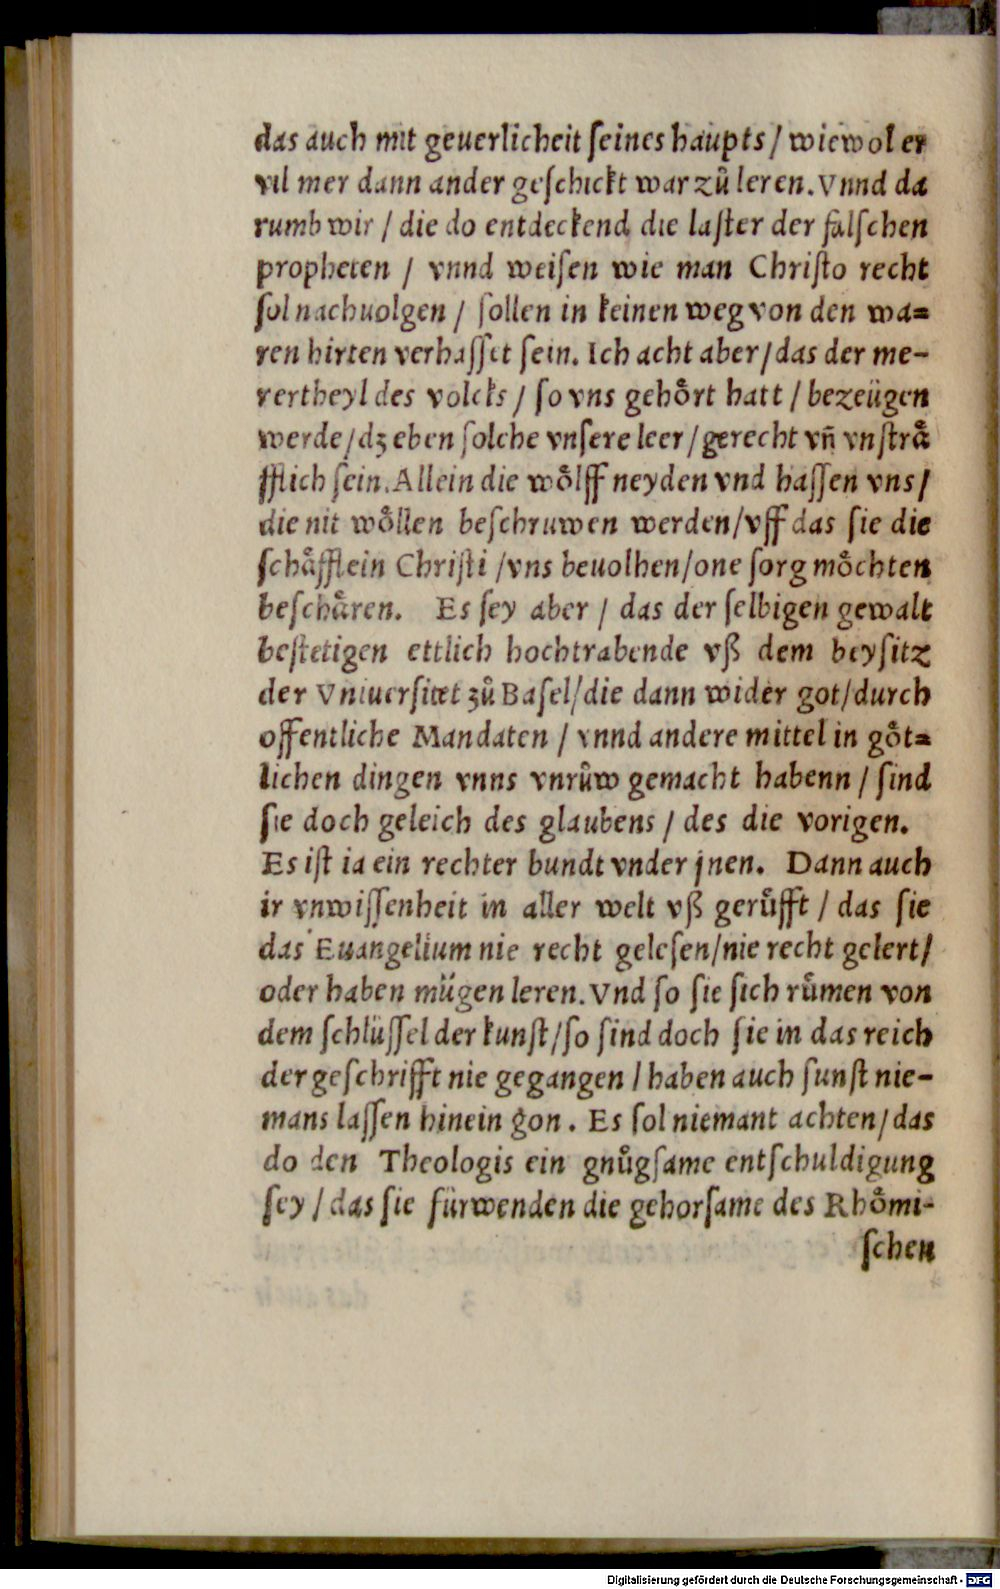 das auch mit geuerlicheit ſeines haupts / wiewol er
vil mer dann ander geſchickt war zů leren. Vnnd da
rumb wir / die do entdeckend die laſter der falſchen
propheten / vnnd weiſen wie man Chriſto recht
ſol nachuolgen / ſollen in keinen weg von den wa=
ren hirten verhaſſet ſein. Ich acht aber / das der me-
rertheyl des volcks / ſo vns gehoͤrt hatt / bezeügen
werde / dʒ eben ſolche vnſere leer / gerecht vñ vnſtraͤ
fflich ſein. Allein die woͤlff neyden vnd haſſen vns /
die nit woͤllen beſchruwen werden / vff das ſie die
ſchaͤfflein Chriſti / vns beuolhen / one ſorg moͤchten
beſchaͤren. Es ſey aber / das der ſelbigen gewalt
beſtetigen ettlich hochtrabende vß dem beyſitz
der Vniuerſitet zů Baſel / die dann wider got / durch
offentliche Mandaten / vnnd andere mittel in goͤt=
lichen dingen vnns vnrůw gemacht habenn / ſind
ſie doch geleich des glaubens / des die vorigen.
Es iſt ia ein rechter bundt vnder jnen. Dann auch
ir vnwiſſenheit in aller welt vß gerůfft / das ſie
das Euangelium nie recht geleſen / nie recht gelert /
oder haben mügen leren. Vnd ſo ſie ſich růmen von
dem ſchlüſſel der kunſt / ſo ſind doch ſie in das reich
der geſchrifft nie gegangen / haben auch ſunſt nie-
mans laſſen hinein gon. Es ſol niemant achten / das
do den Theologis ein gnůgſame entſchuldigung
ſey / das ſie fürwenden die gehorſame des Rhoͤmi-
ſchen
Digitalisierung gefördert durch die Deutsche Forschungsgemeinschaft - DFG